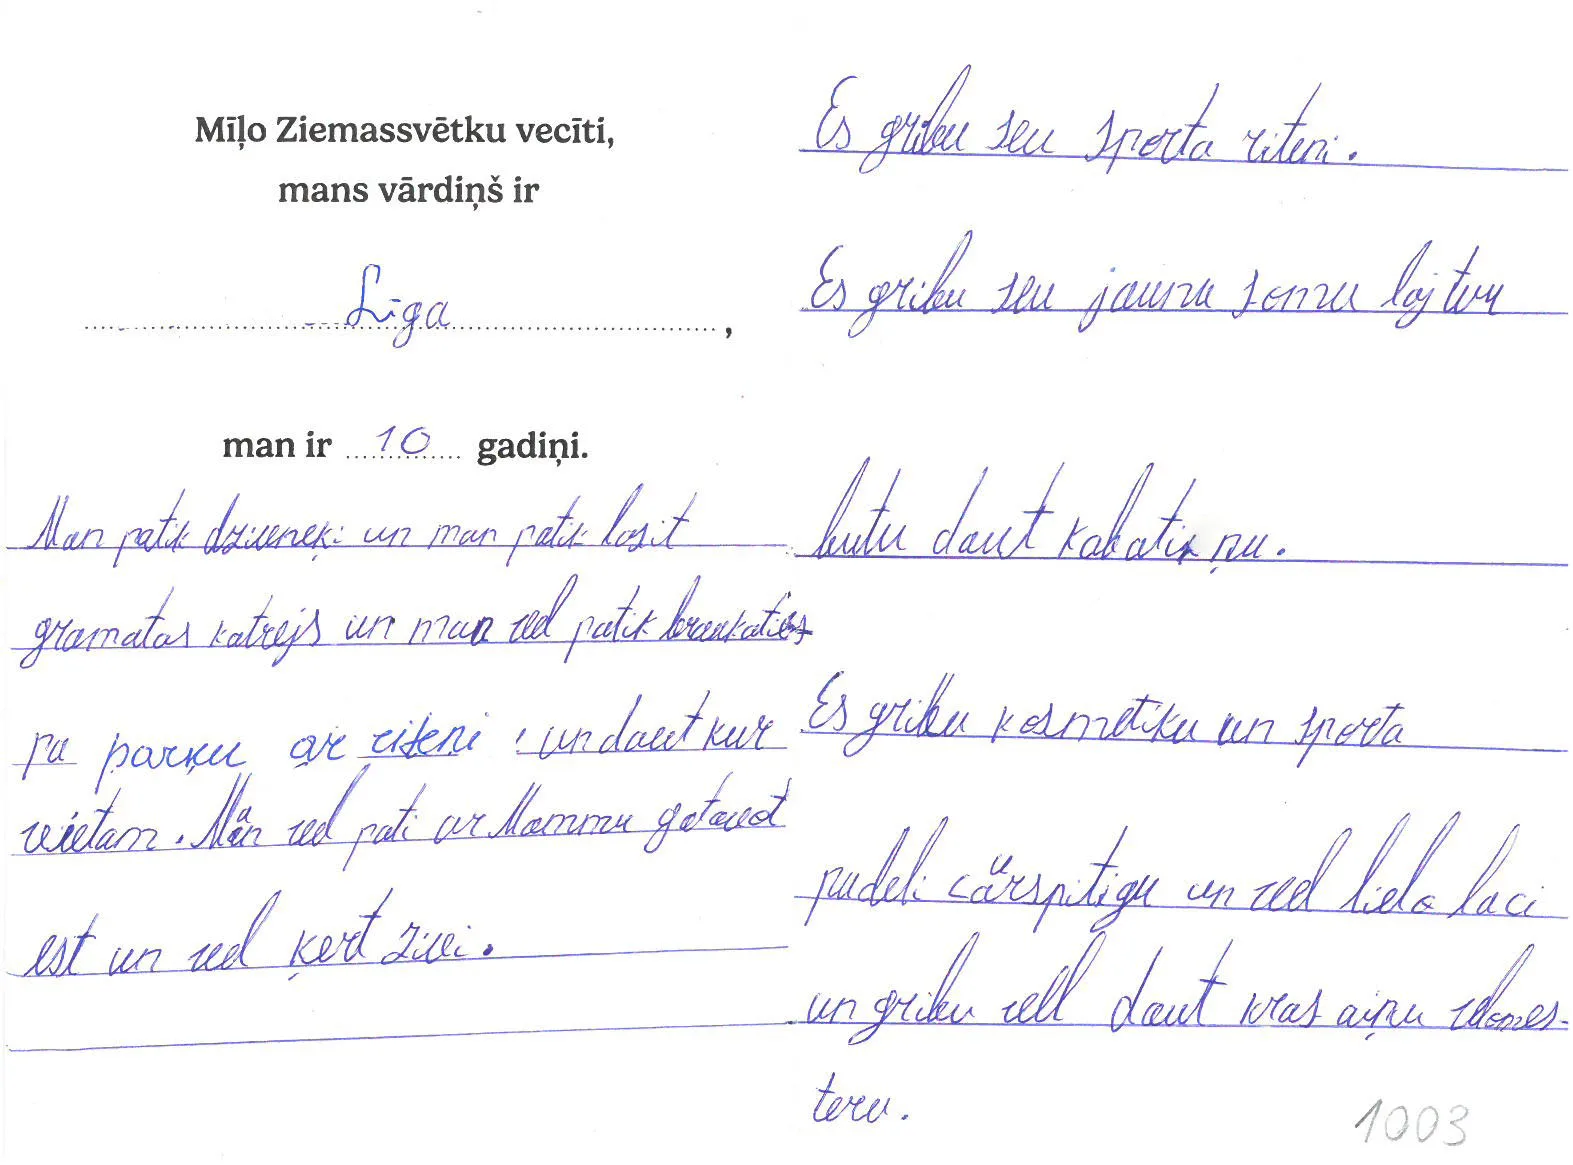 Mīļo Ziemassvētku vecīti,
mans vārdiņš ir
Līga,
man ir 10 gadiņi.
Man patik dziveneķi un man patik lasit
gramatas katrejs un man ved patik braukaties
pa parķu ar riteni un daut kur
vietam. Man ved pati ar Mammu gatavot
est un ved ķert zivi.
Es gribu sev sporta riteni.
Es gribu sev jaunu somu laj tur
butu daut kabatiņu.
Es gribu kosmetiku un sporta
pudeli cārspitigu un ved liela laci
un gribu vell daut kras aiņu
teru.
1003